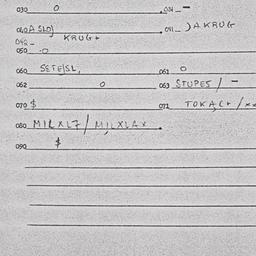 030 0 031 -
040 A SLO) KRUG+ 041 ) A KRUG
042 -
050 -0
060 SETE/SL, 061 0
062 0 063 STUPES / -
070 $ 071
080 MILXL7 / MILXLAX
090 $